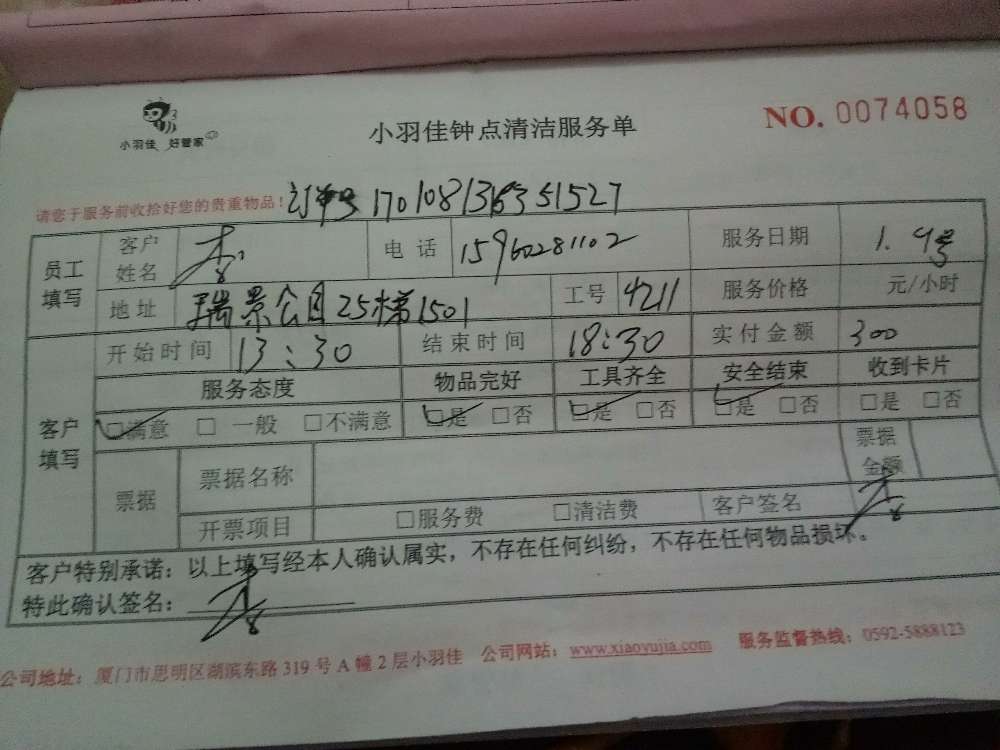 小羽佳 好管家
小羽佳钟点清洁服务单
NO. 0074058
请您于服务前收拾好您的贵重物品！订单号 17010813635 1527
员工填写 客户姓名 李 电话 15960281102 服务日期 1.9号
地址 瑞景公园25梯1501 工号 4211 服务价格 元/小时
客户填写 开始时间 13:30 结束时间 18:30 实付金额 300
服务态度 物品完好 工具齐全 安全结束 收到卡片
☑满意 □ 一般 □不满意 ☑是 □否 ☑是 □否 ☑是 □否 □是 □否
票据 票据名称 票据金额
开票项目 □服务费 □清洁费 客户签名 李
客户特别承诺：以上填写经本人确认属实，不存在任何纠纷，不存在任何物品损坏。
特此确认签名： 李
公司地址：厦门市思明区湖滨东路 319 号 A 幢 2 层小羽佳 公司网站：www.xiaoyujia.com 服务监督热线：0592-5888123